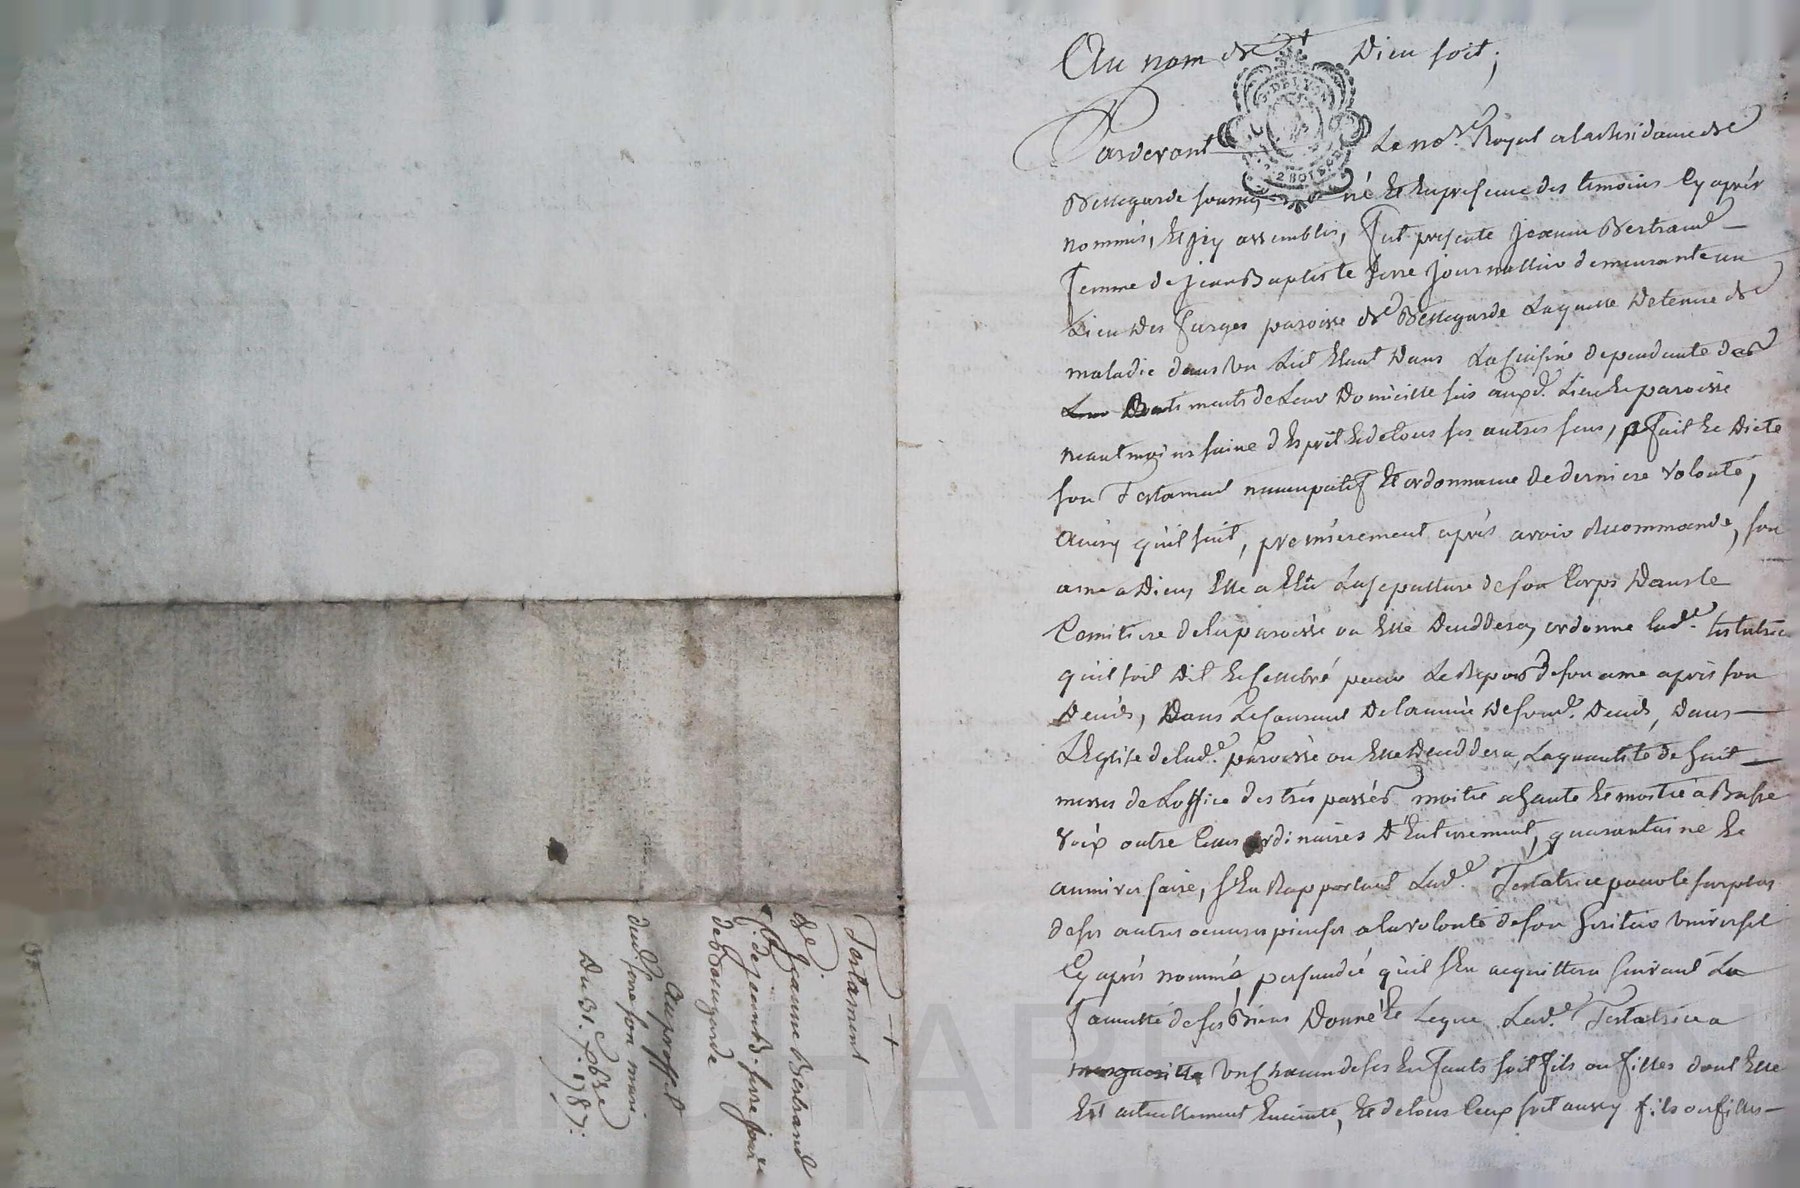 Au nom de Dieu soit;
G. DE LYON
2 SOLS
Pardevant Le no.re Royal a la Residance de
Bellegarde soussigné et En presence des temoins Cy après
nommés, et icy assemblés, fut presente Jeanne Bertrand
femme de Jean Baptiste Serre Journallier demeurante au
Lieu des farges paroisse de Bellegarde Laquelle Detenue de
maladie dans un Lit Etant Dans La Cuisine dependante des
Batiments de Leur Domicille sis auxd. Lieu et paroisse
neantmoins saine d'Esprit et de tous ses autres sens, a fait et Dicté
son Testament nuncupatif et ordonnance de derniere volonté,
ainsy qu'il suit, premierement après avoir Recommandé, son
ame a Dieu, Elle a Elû La sepulture de son Corps Dans le
Cemitiere de la paroisse ou Elle Deceddera, ordonne lad.e testatrice
qu'il soit Dit et Celebré pour Le Repos de son ame après son
Decés, Dans Le Courant De l'année De sond. Decés, Dans
L'Eglise de lad.e paroisse ou Elle Deceddera, La quantité de huit
messes de L'office des trés passés moitié a haute et moitié à Basse
voix outre Celles ordinaires D'Enterrement, quarantaine et
anniversaire, s'En Rapportant Lad.e Testatrice pour le surplus
de ses autres oeuvres pieuses a la volonté de son heritier universel
Cy après nommé, persuadée qu'il s'En acquittera suivant La
faculté de ses Biens Donne et Legue Lad.e Testatrice a
un Chacun de ses Enfants soit fils ou filles dont Elle
Est actuellement Enceinte, et de tous Ceux soit aussy fils ou filles
Testament
de Jeanne Bertrand
f. de Jean B. Serre Jour
de Bellegarde
Au proffit
dud. Serre son mari
Du 31. 1787.
CHAPEYRON